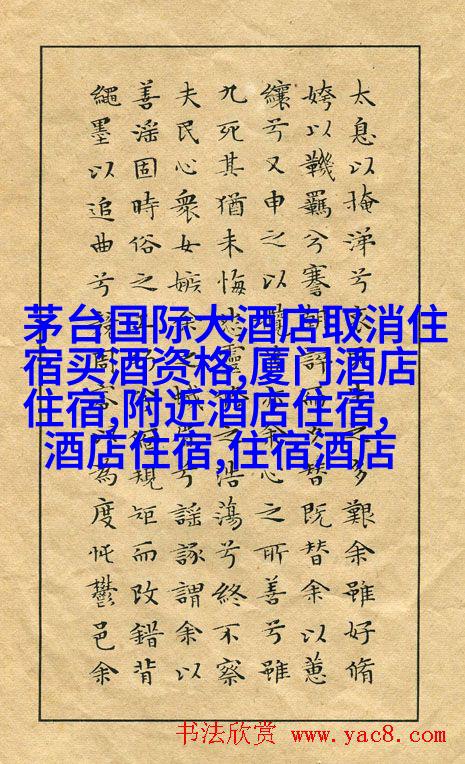 太息以掩涕兮哀之多艱余雖好脩
姱以鞿羈兮謇朝誶而夕替既替余以蕙
纕兮又申之以攬余心之所善兮雖
九死其猶未悔怨靈之浩蕩兮終不察
夫民心衆女嫉余之兮謠諑謂余以
善淫固時俗之規矩而改錯背
繩墨以追曲兮競周容為度忳鬱邑余
茅台国际大酒店取消住
宿买酒资格,厦门酒店
住宿,附近酒店住宿,
酒店住宿,住宿酒店
书法欣赏 www.yac8.com